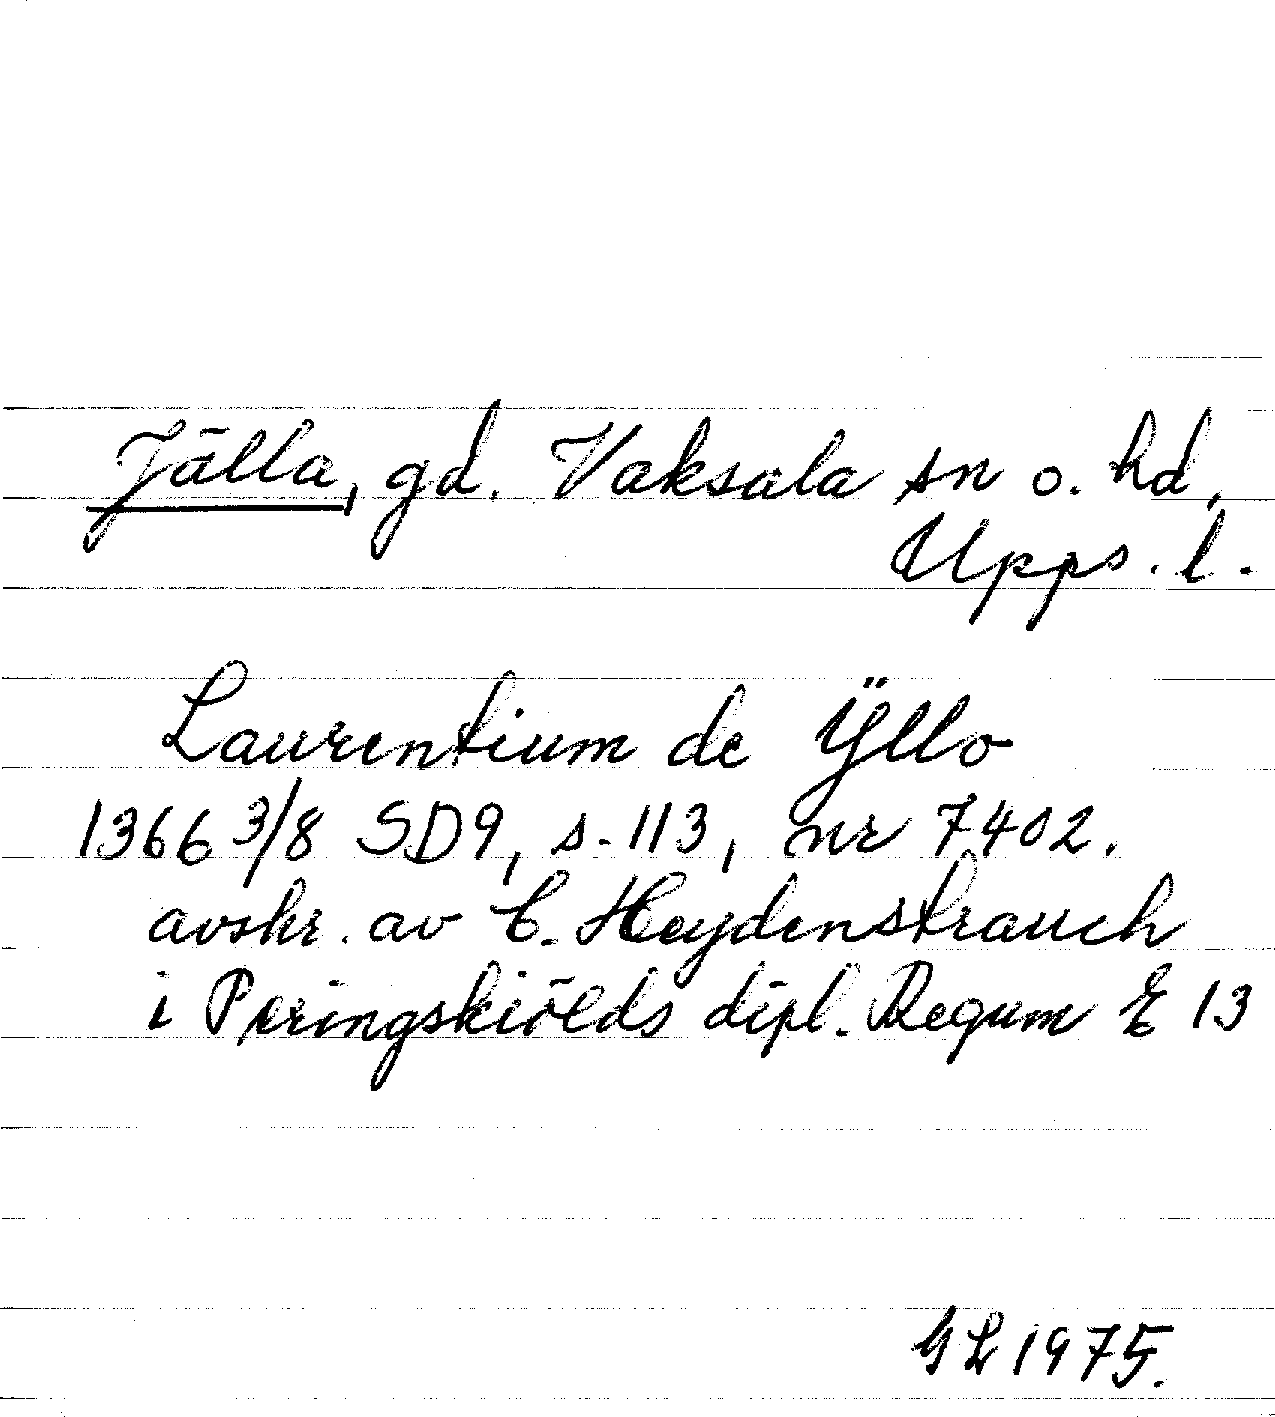 Jälla, gd. Vaksala sn o. hd,
Upps. l.
Laurentium de Ÿllo
1366 3/8 SD9, s. 113, nr 7402.
avskr. av C. Heydenstrauch
i Peringskiölds dipl. Regum E 13
GL 1975.